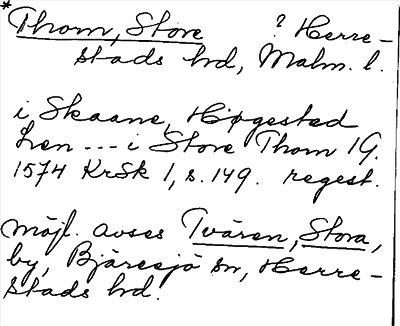 * Thom, Store ? Herre-
stads hd, Malm. l.
i Skaane, Høgested
Len --- i Store Thom 19.
1574 KrSk 1, s. 149. regest.
möjl. avses Tvären, Stora,
by, Bjäresjö sn, Herre-
stads hd.